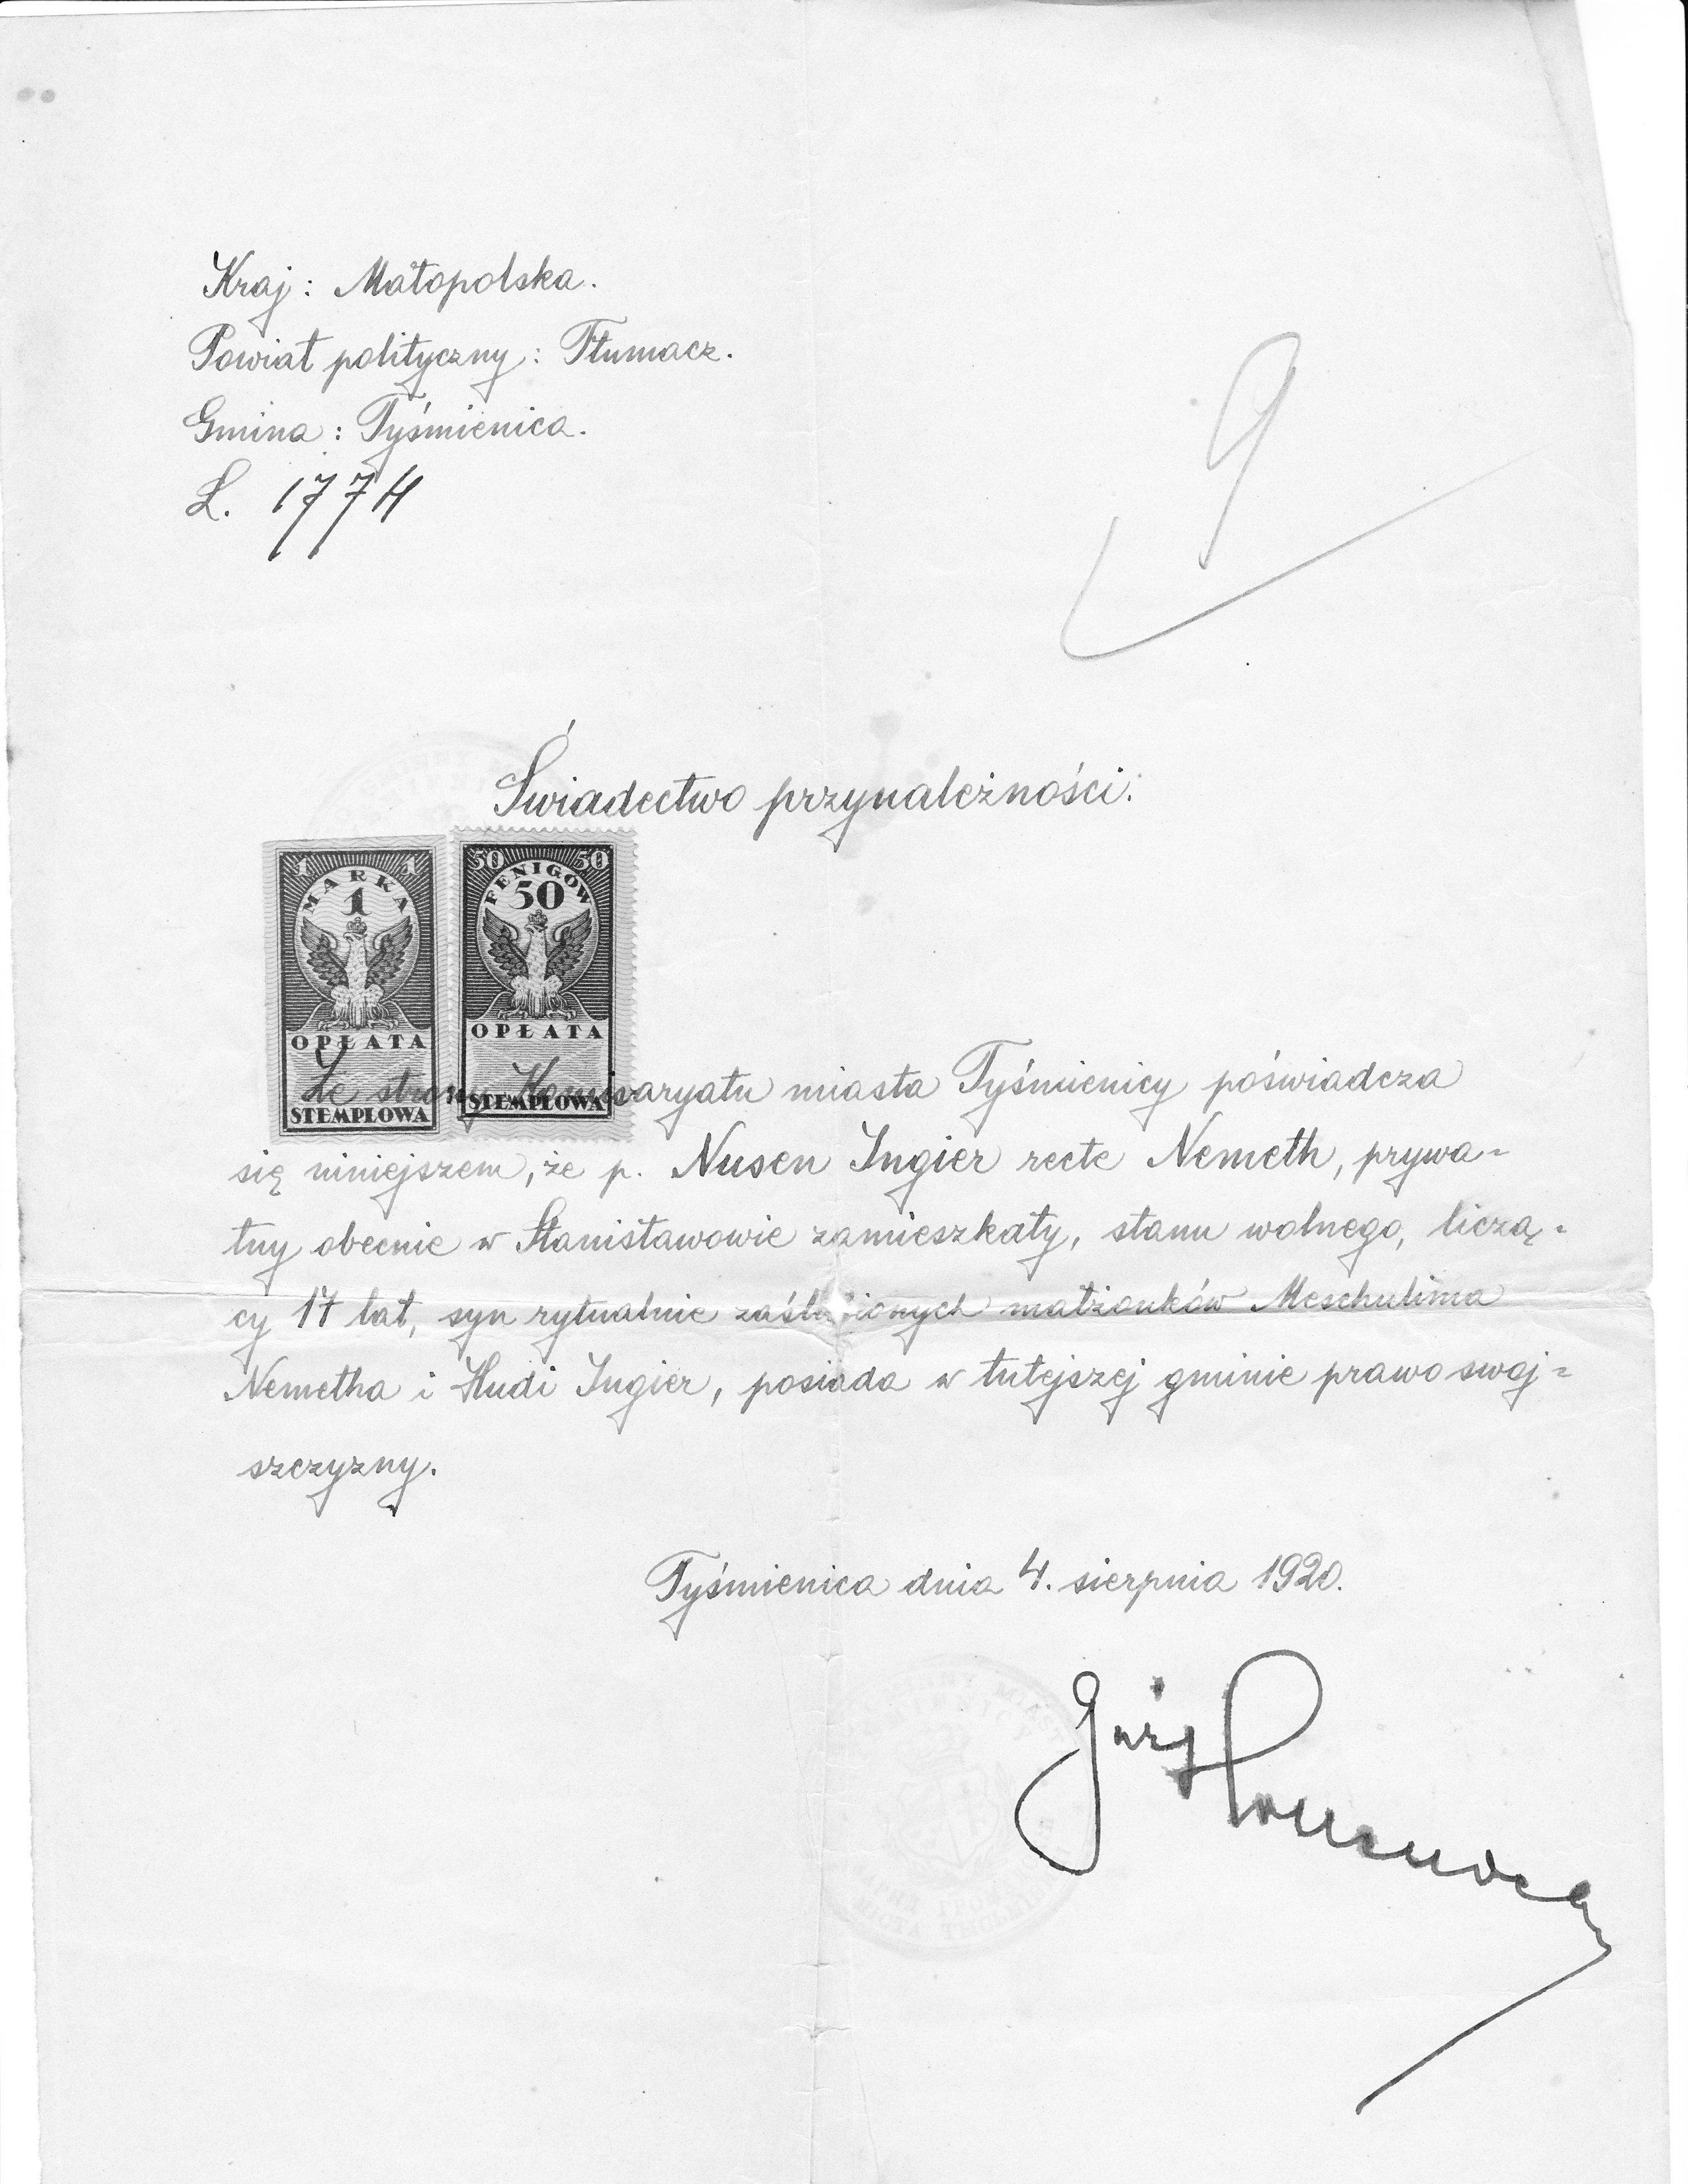 Kraj: Małopolska.
Powiat polityczny: Tłumacz.
Gmina: Tyśmienica.
L. 1774
9
Świadectwo przynależności.
1 1
MARKA
1
OPŁATA
STEMPLOWA
50 50
FENIGÓW
50
OPŁATA
STEMPLOWA
Ze strony Komisaryatu miasta Tyśmienicy poświadcza
się niniejszem, że p. Nusen Ingier recte Nemeth, prywa=
tny obecnie w Stanisławowie zamieszkały, stanu wolnego, liczą=
cy 17 lat, syn rytualnie zaślubionych małżonków Meschulima
Nemetha i Hudi Ingier, posiada w tutejszej gminie prawo swoj=
szczyzny.
Tyśmienica dnia 4. sierpnia 1920.